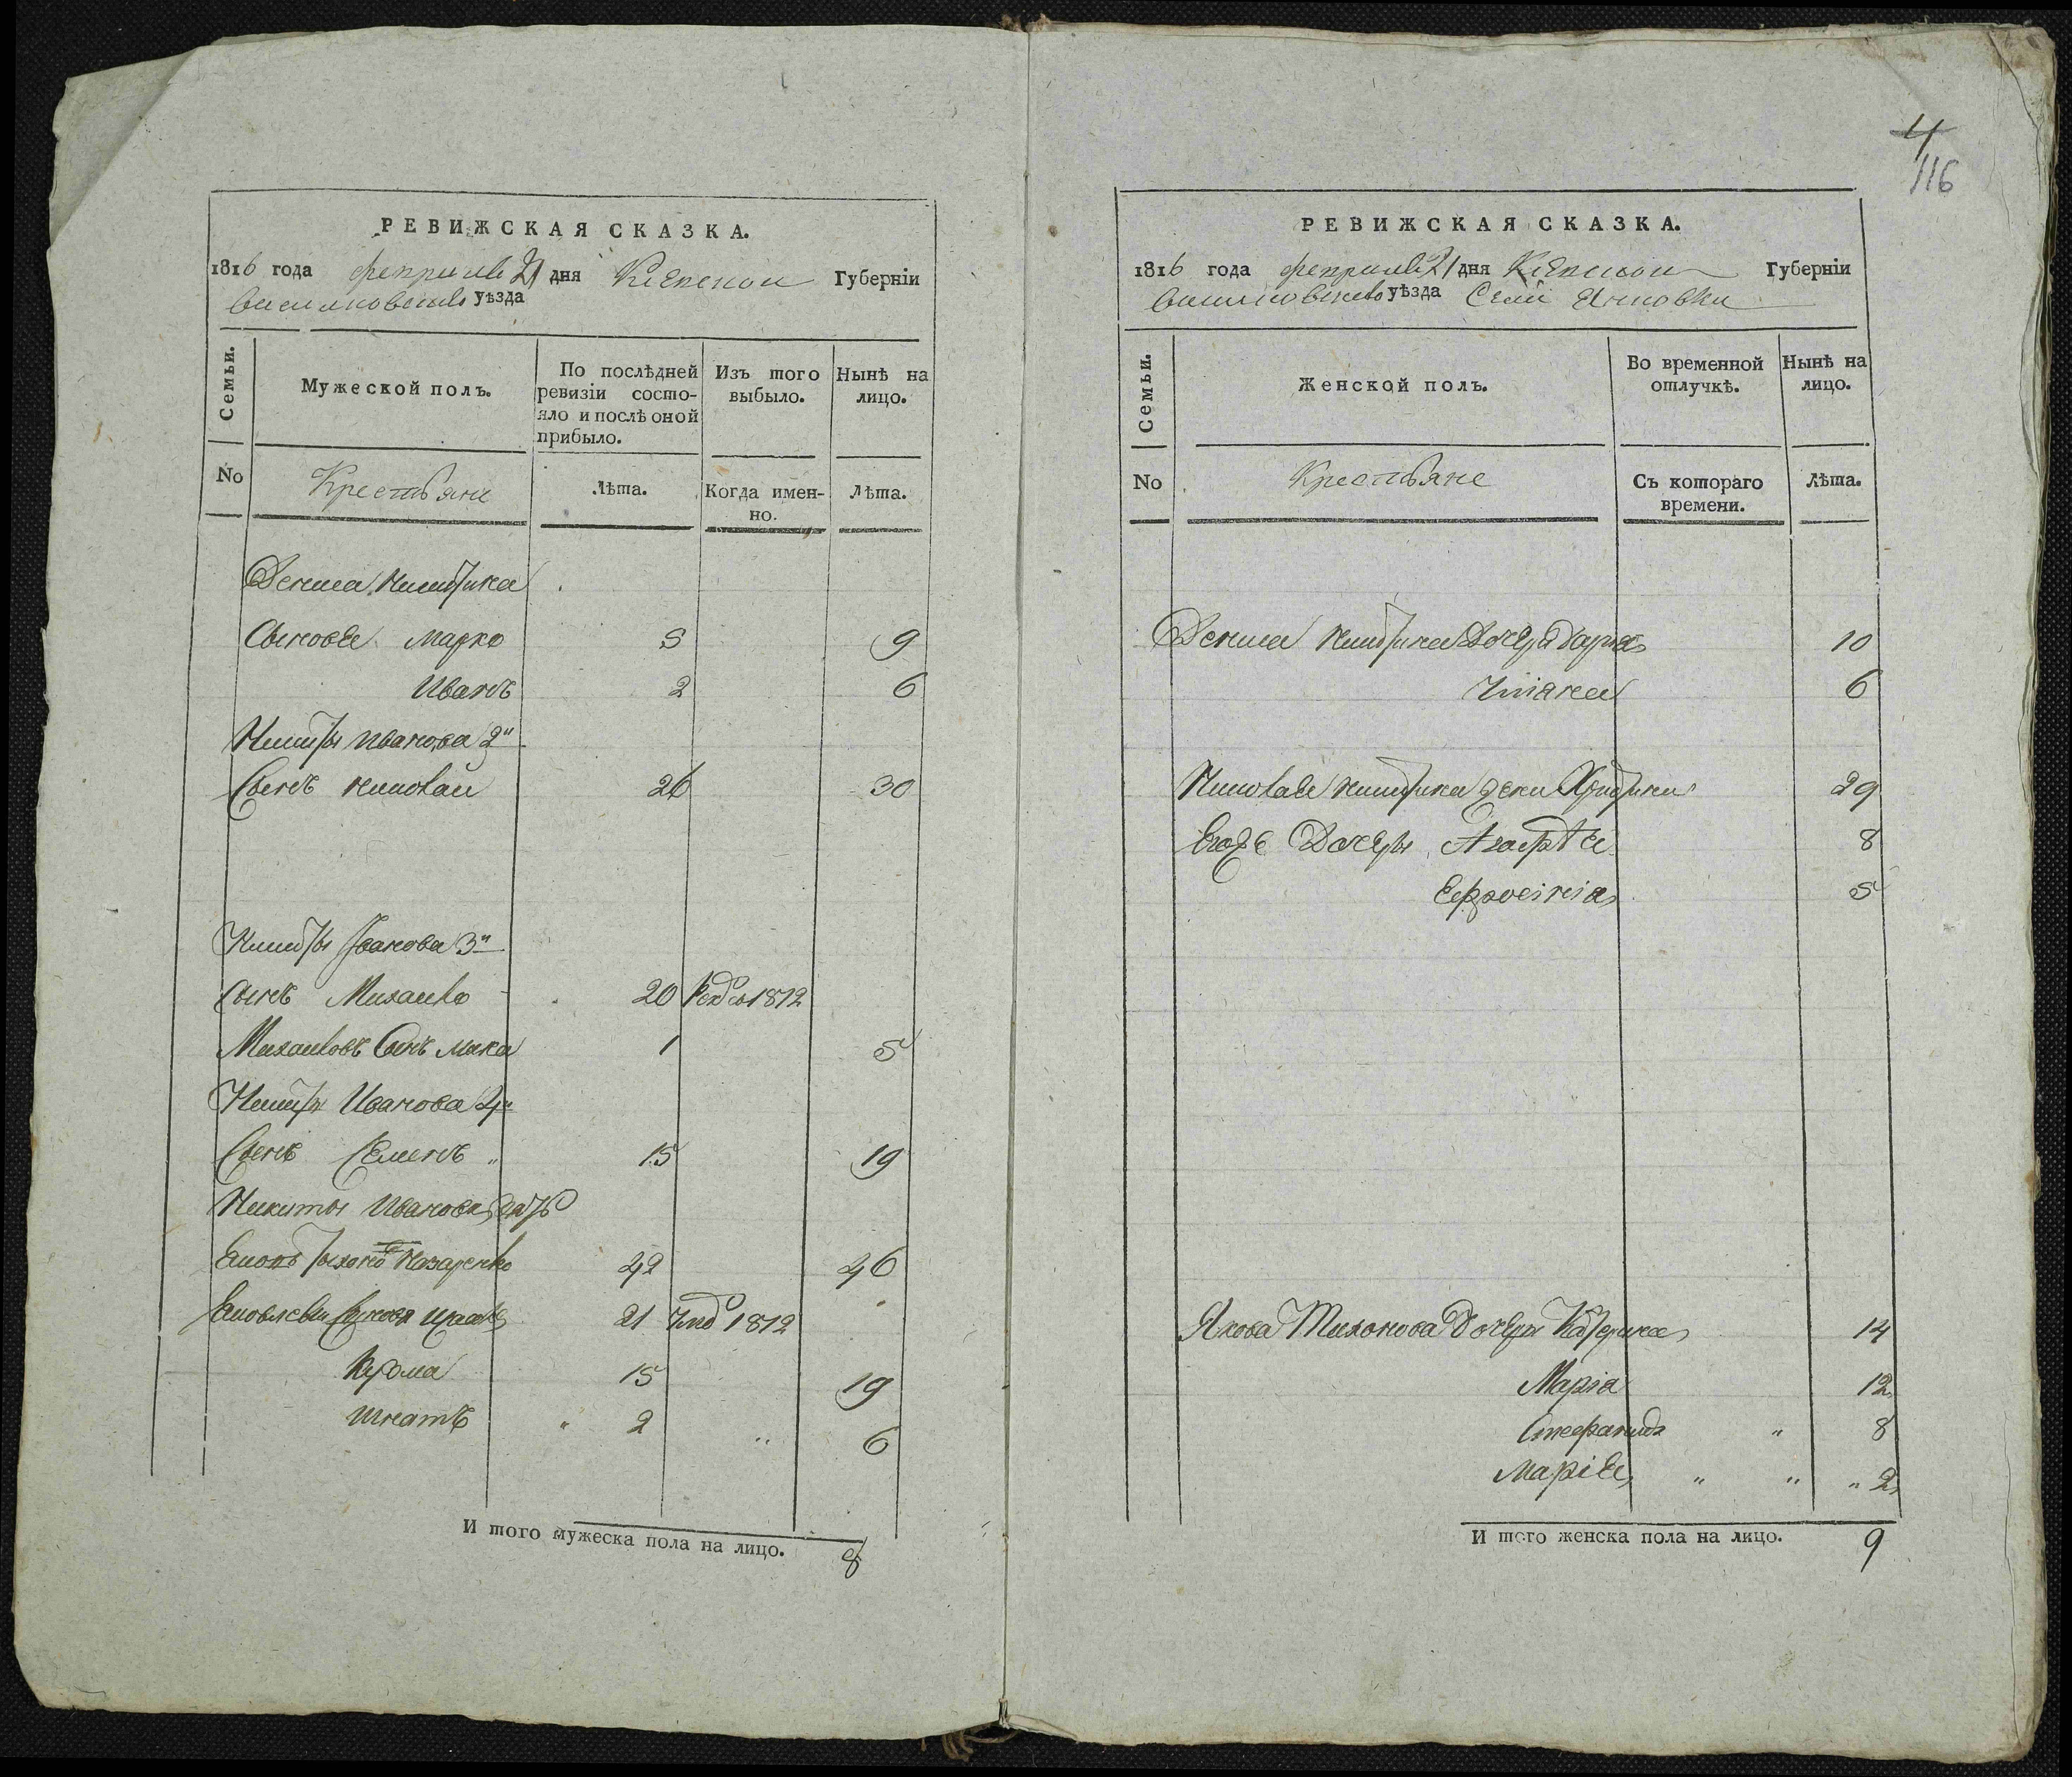 РЕВИЖСКАЯ СКАЗКА.
1816 года февраля 21 дня Киевской Губерніи
Васильковскаго уѣзда
Семьи.
Мужеской полъ.
По послѣдней ревизіи состояло и послѣ оной прибыло.
Изъ того выбыло.
Нынѣ на лицо.
No
Крестьяне
Лѣта.
Когда именно.
Лѣта.
Дениса Никитина
Сыновья Марко 5 9
Иванъ 2 6
Никиты Иванова 2й
Сынъ Николай 26 30
Никиты Иванова 3й
Сынъ Михайло 20 1812
Михайловъ Сынъ Лука 1 5
Никиты Иванова 4й
Сынъ Семенъ 15 19
Никиты Иванова зять
Яковъ Тихоновъ Назаренко 42 46
Яковлевы Сыновя 21 1812
Кузма 15 19
Игнатъ 2 6
И того мужеска пола на лицо. 8
4
116
РЕВИЖСКАЯ СКАЗКА.
1816 года февраля 21 дня Киевской Губерніи
Васильковскаго уѣзда Села
Семьи.
Женской полъ.
Во временной отлучкѣ.
Нынѣ на лицо.
No
Крестьяне
Съ котораго времени.
Лѣта.
Дениса Никитина Дочери Дарія 10
6
Николая Никитина жена 29
Его Дочеры Агафія 8
Ефросинія 5
Якова Тихонова Дочеры Катерина 14
Марія 12
Стефанида 8
Марія 2
И того женска пола на лицо. 9